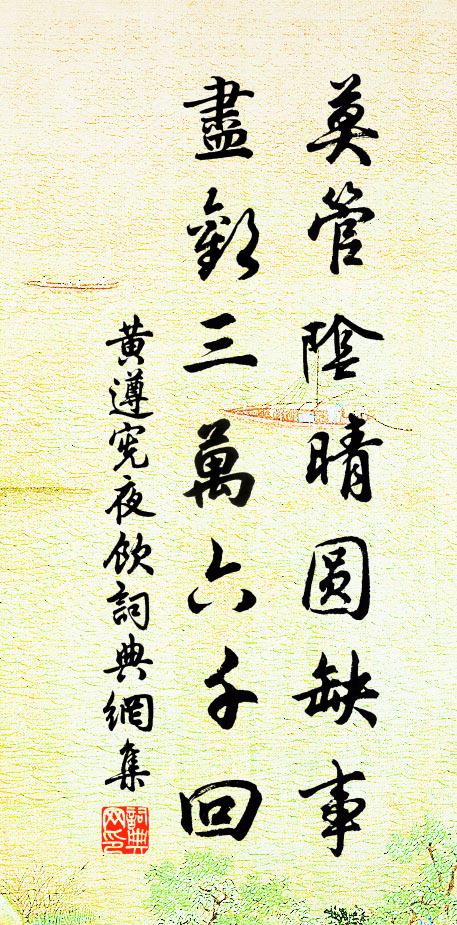 莫管陰晴圓缺事
盡歡三萬六千回
黃遵宪夜飲詞典網集
詞典网印